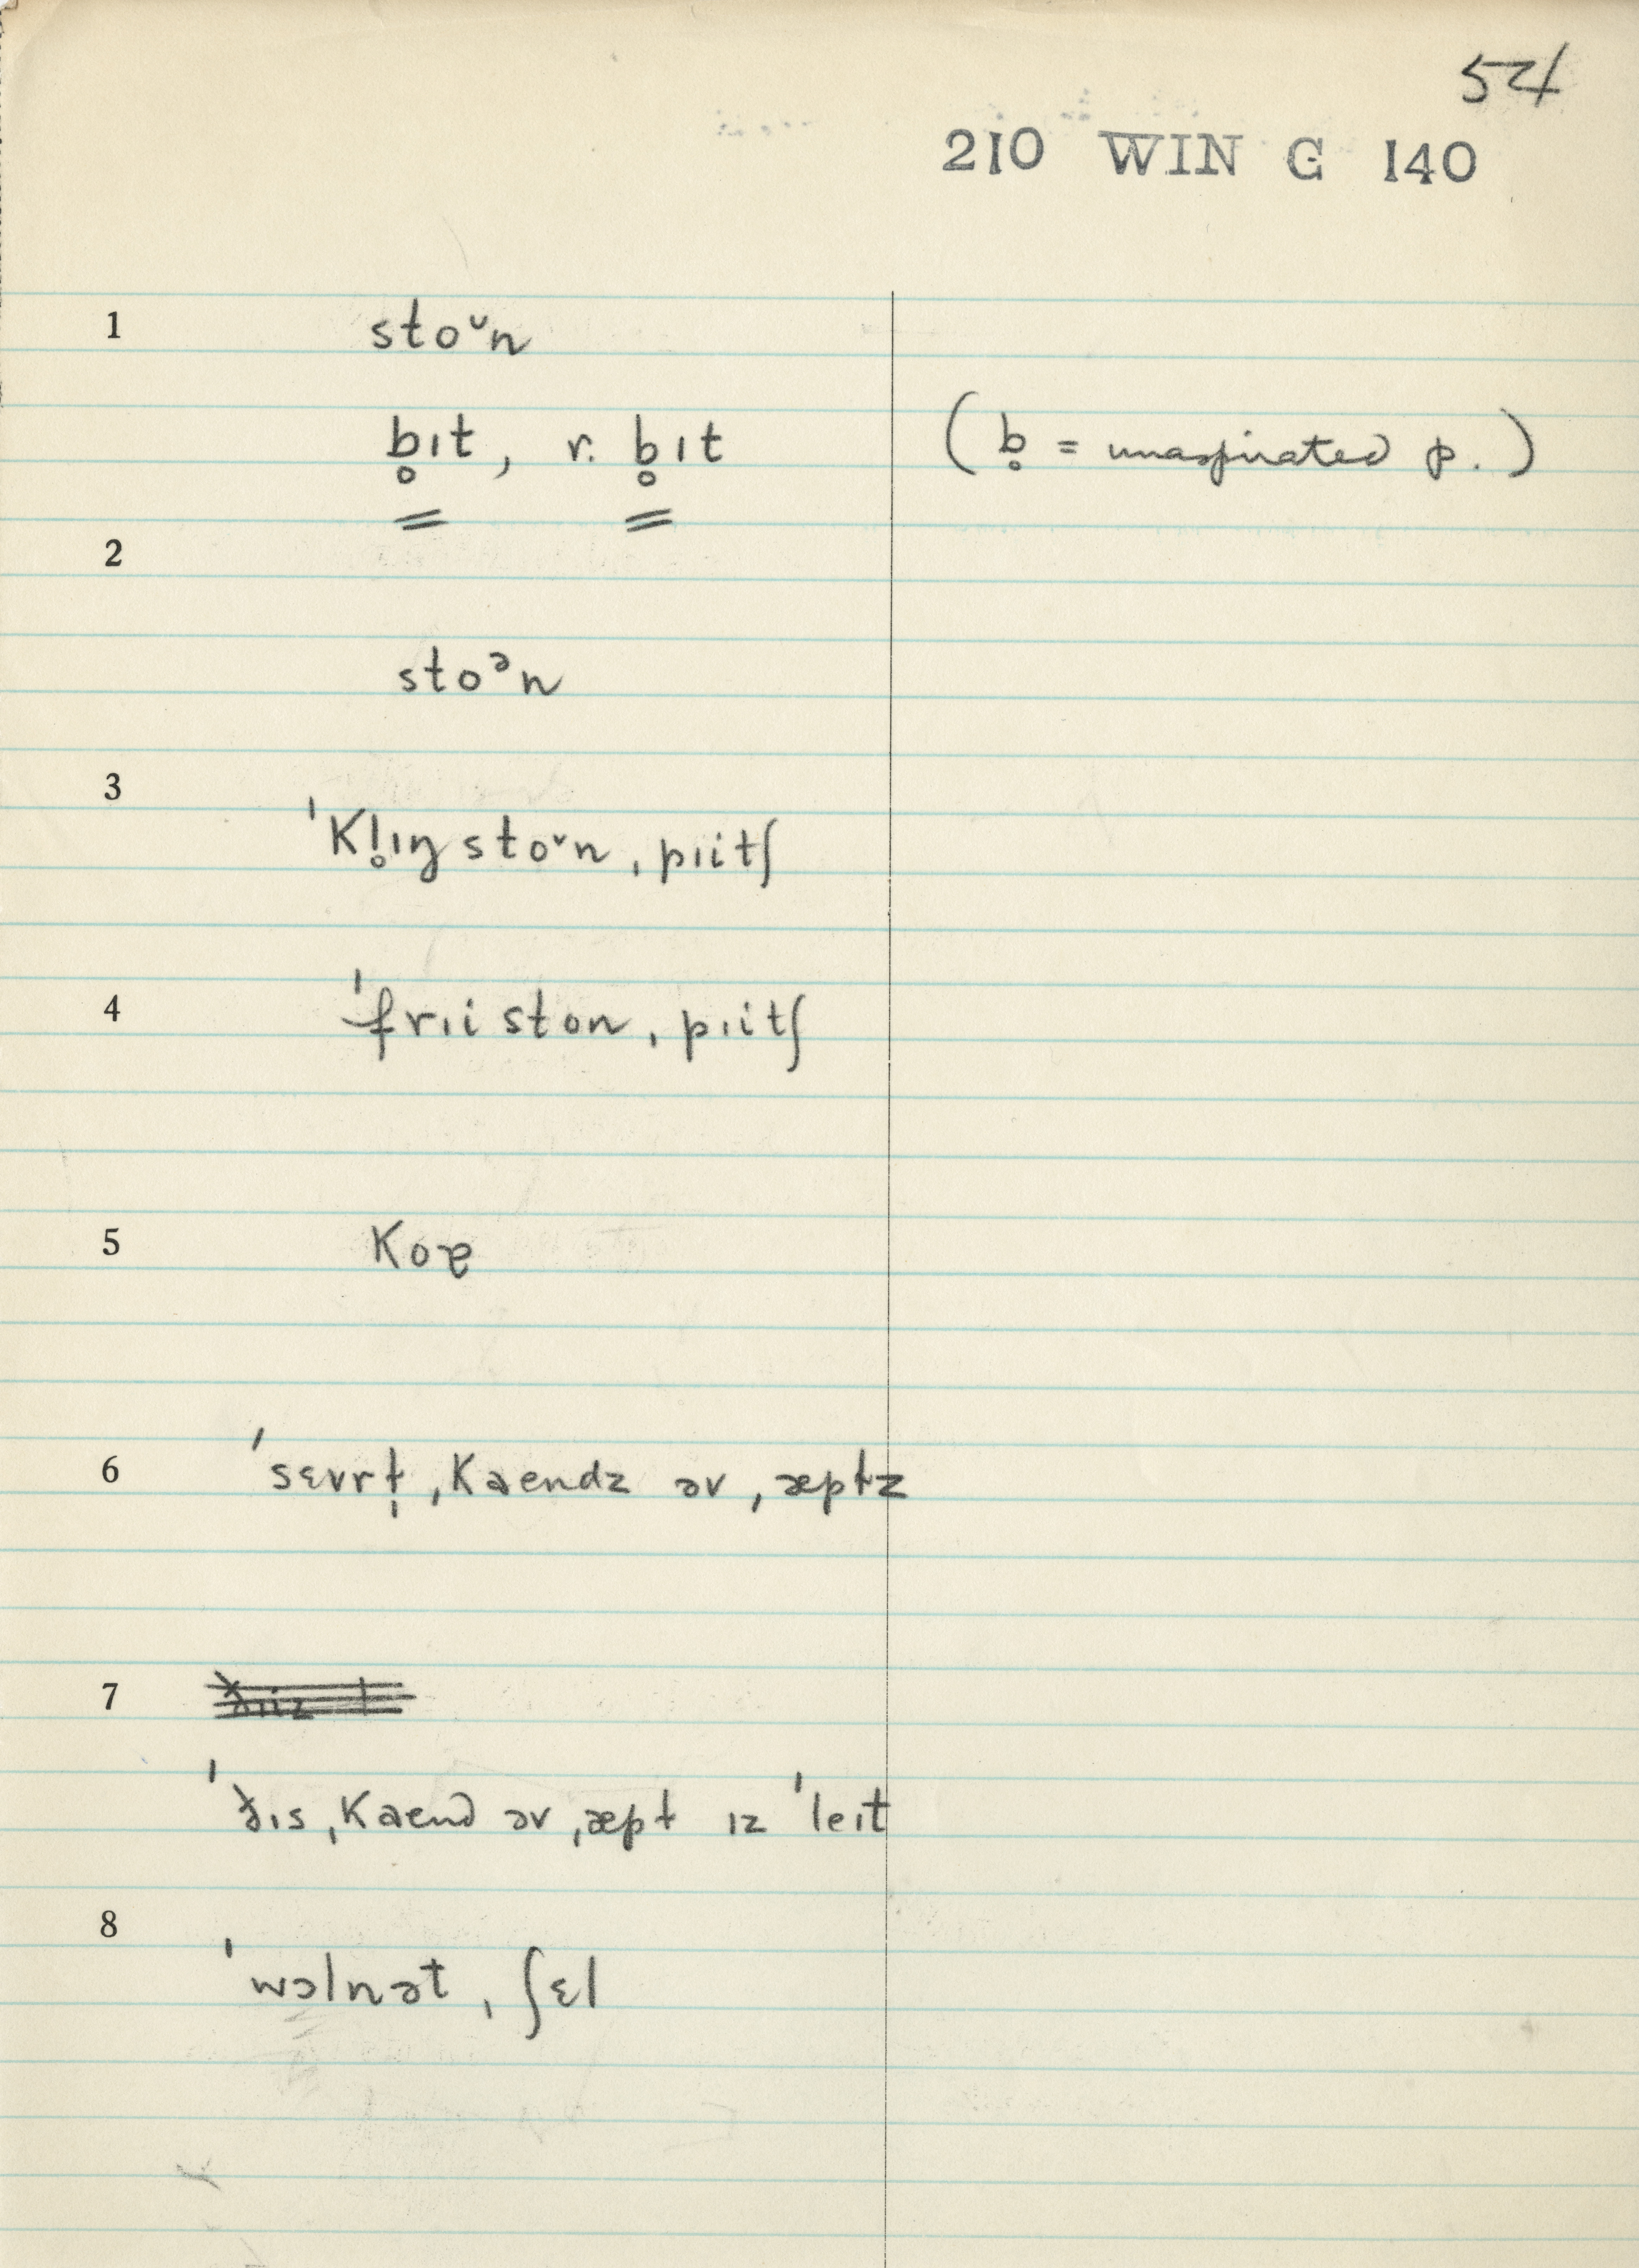 54
210 WIN G 140
1 stoᵘn
b̥ɪt, r. b̥ɪt (b̥ = unaspirated p.)
2
stoᵊn
3
ˈKl̥ɪŋ stoᵘn ˌpɪitʃ
4 ˈfrɪi ston ˌpɪitʃ
5 Koɐ
6 ˈsɛvrt̩ ˌKaendz əv ˌæptz
7
ˈðɪs ˌKaend əv ˌæpt ɪz ˈleɪt
8
ˈwɔlnət ˌʃɛl